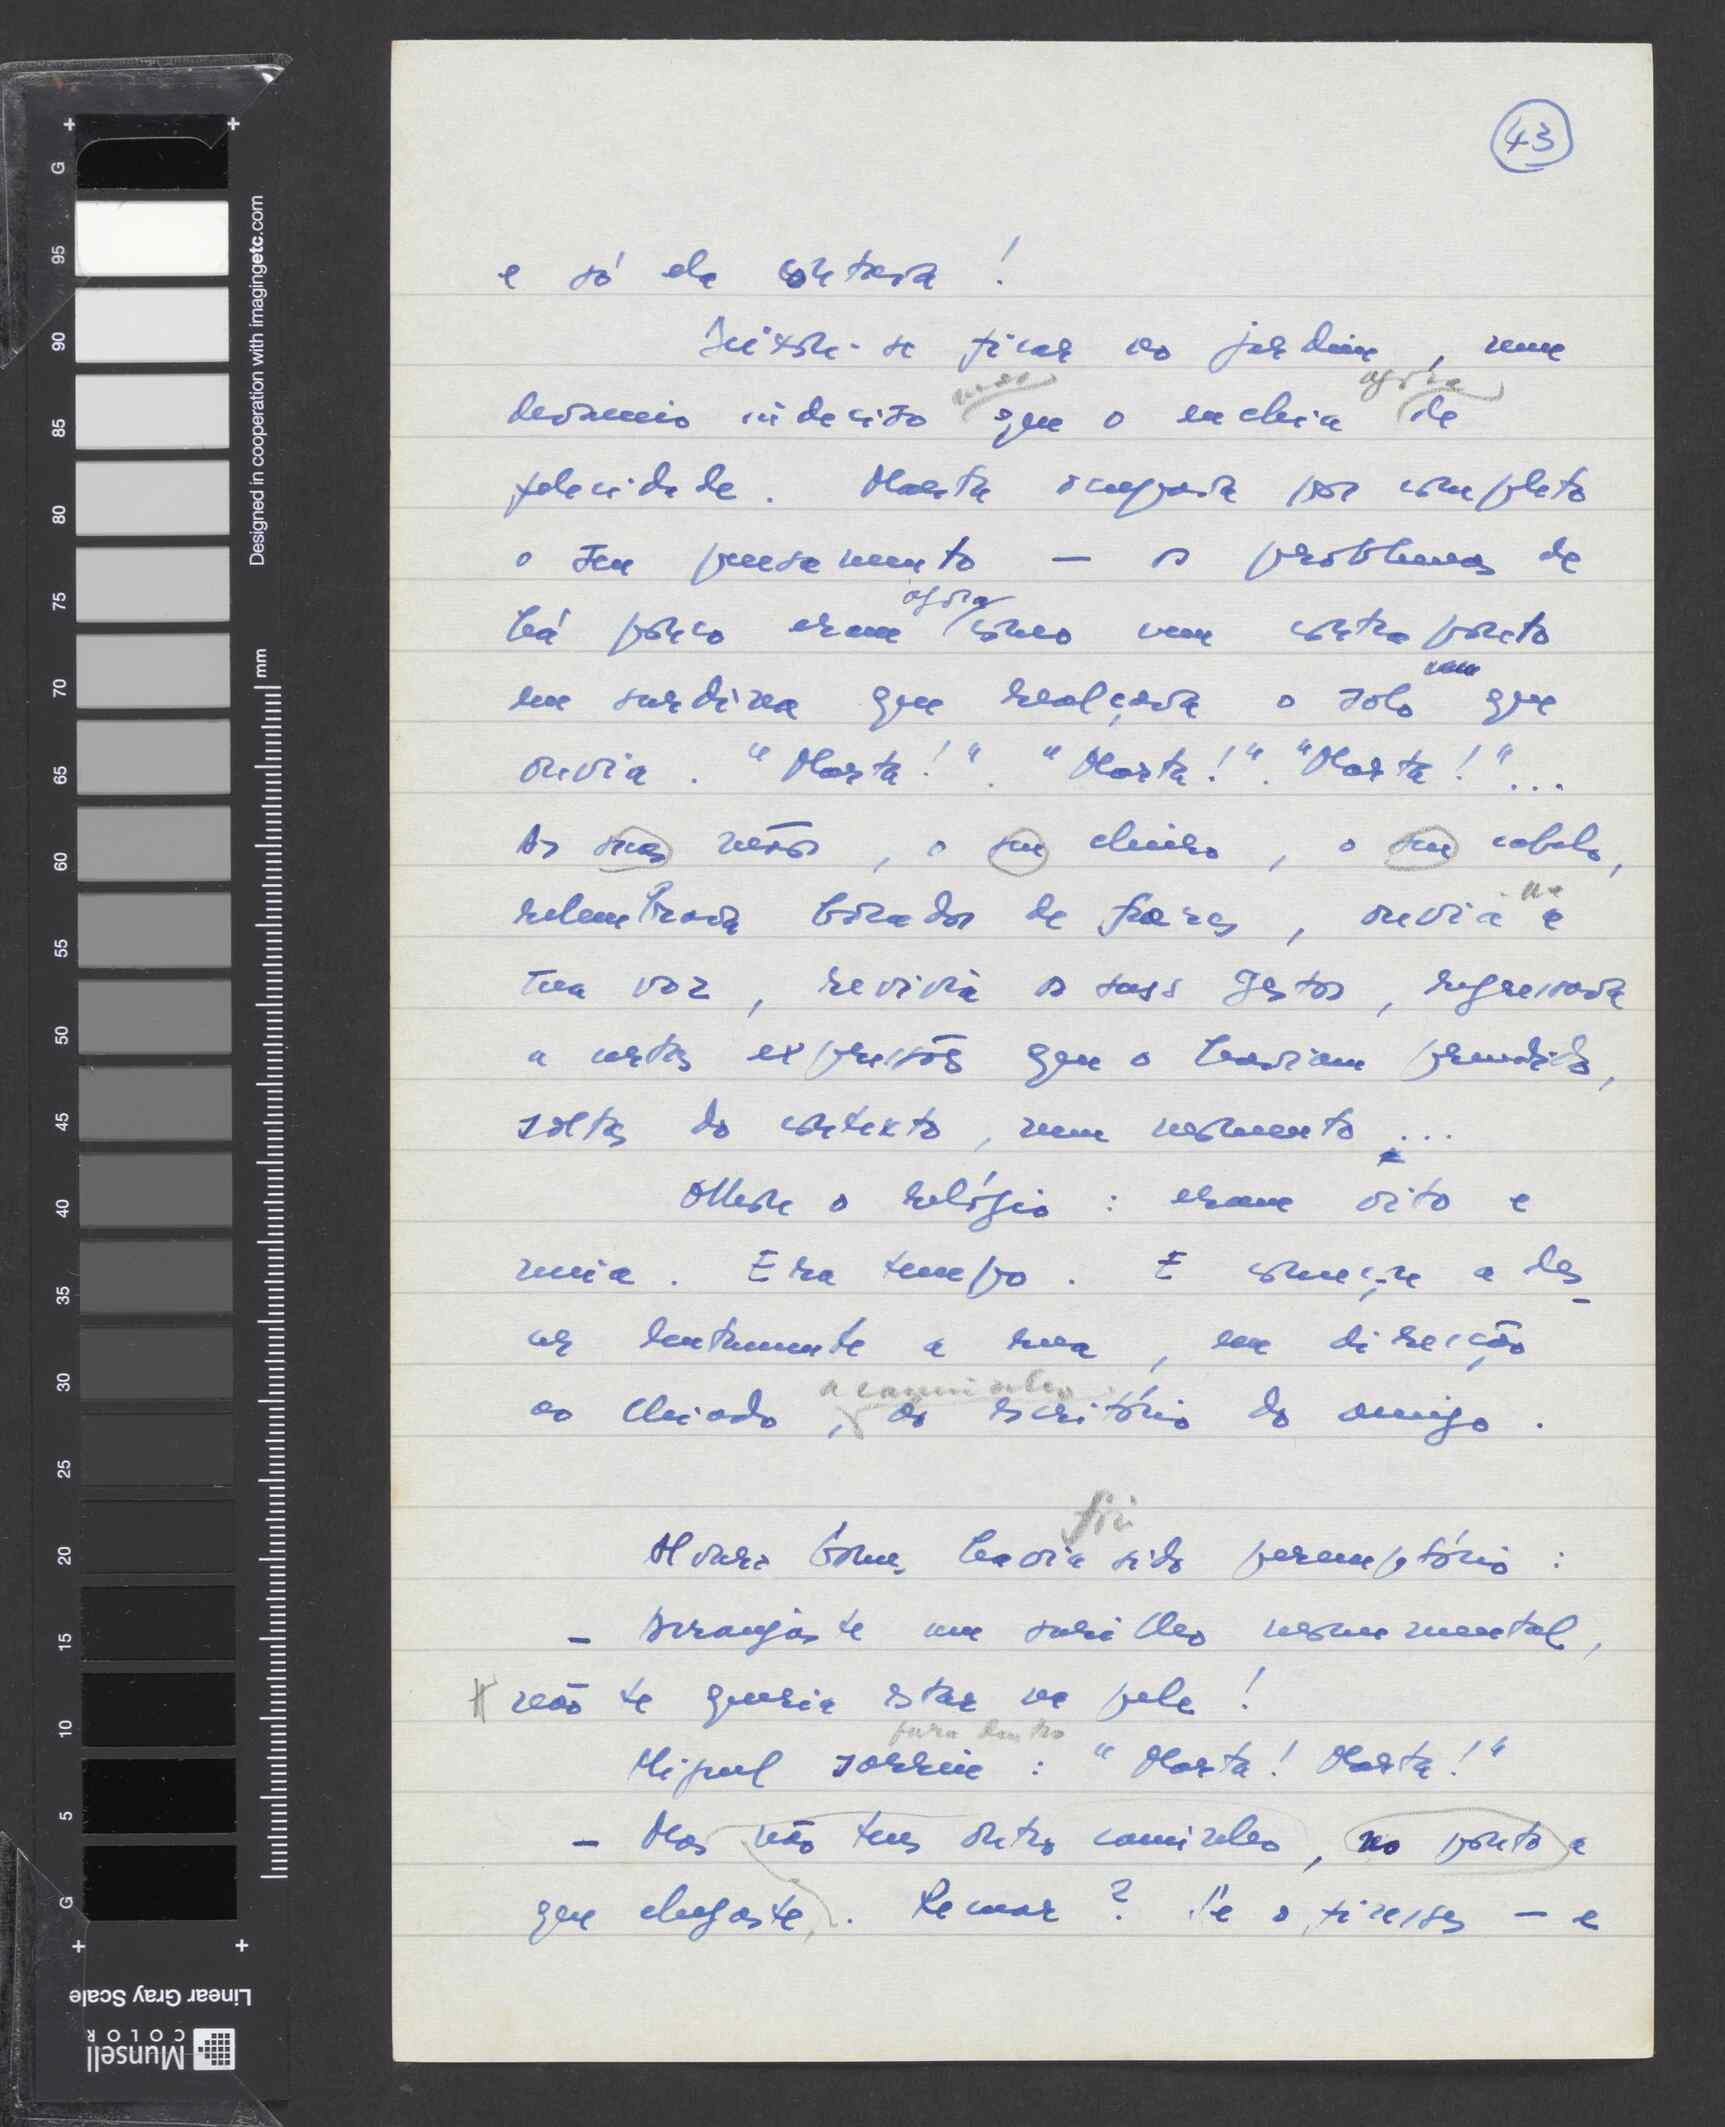 43
e só ela contava!
Deixou-se ficar no jardim, num
mas agora
devaneio indeciso que o enchia de
felicidade. Marta ocupava por completo
o seu pensamento — os problemas de
agora
há pouco eram como um contraponto
em surdina que realçava o solo que
ouvia. "Marta!". "Marta!". "Marta!"...
As suas mãos, o seu cheiro, o seu cabelo,
relembrava bocados de frases, ouvia a
sua voz, revivia os seus gestos, regressava
a certas expressões que o haviam prendido,
soltas do contexto, num momento...
Olhou o relógio: eram oito e
meia. Era tempo. E começou a des-
cer lentamente a rua, em direcção
a caminho
ao Chiado, do escritório do amigo.
foi
Alvaro Gomes havia sido peremptório:
- Arranjaste um sarilho monumental,
não te queria estar na pele!
para dentro
Miguel sorriu: "Marta! Marta!"
- Mas não tens outro caminho, no ponto a
que chegaste. Remar? Se o fizesses — e
G 95 90 85 80 75 70 65 60 55 50 45 40 35 30 25 20 15 10 5 G
Designed in cooperation with imagingetc.com
mm
Linear Gray Scale
Munsell
COLOR